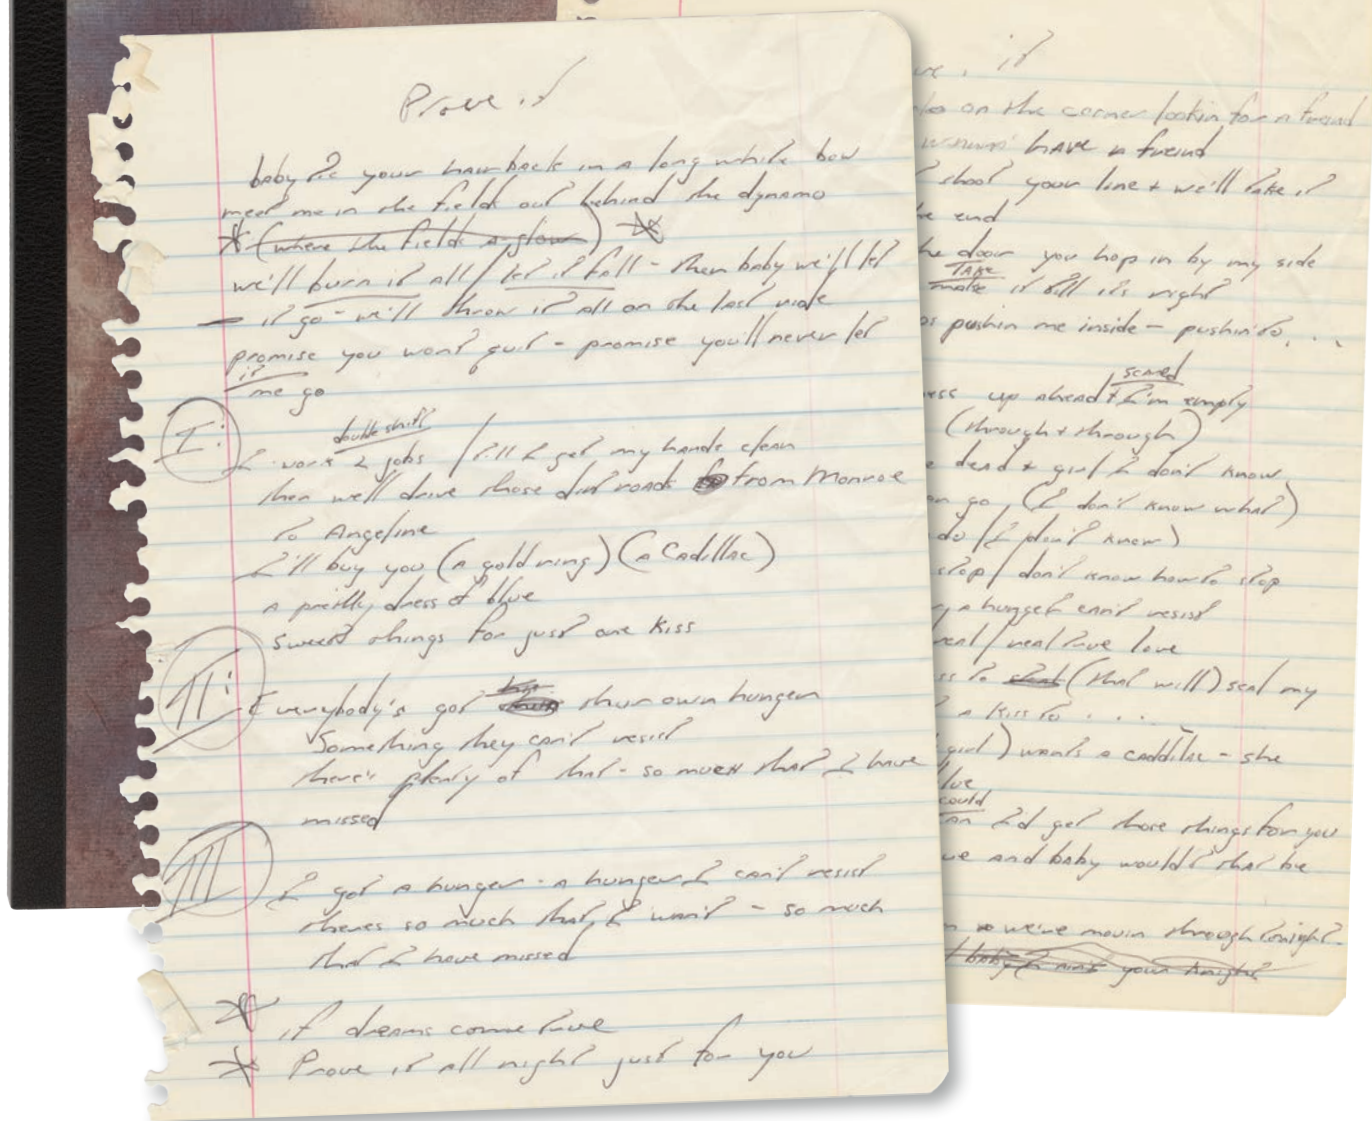 Prove it
baby tie your hair back in a long white bow
meet me in the fields out behind the dynamo
(where the fields a glow)
we'll burn it all / let it fall - then baby we'll let
it go - we'll throw it all on the last ride
promise you won't quit - promise you'll never let
it
me go
I:
double shift
I work 2 jobs / till I get my hands clean
then we'll drive those dirt roads from Monroe
to Angeline
I'll buy you (a gold ring) (a Cadillac)
a pretty dress of blue
sweet things for just one kiss
II:
Everybody's got their own hunger
Something they can't resist
there's plenty of that - so much that I have
missed
III
I got a hunger - a hunger I can't resist
theres so much that I want - so much
that I have missed
if dreams come true
Prove it all night just for you
it
on the corner lookin for a freind
have a freind
shoot your line + we'll take it
end
door you hop in by my side
Take
make it till its right
pushin me inside - pushin to, ...
scared
up ahead + I'm empty
(through + through)
dead + girl I don't know
go (I don't know what)
do / I don't know)
stop / don't know how to stop
a hunger I can't resist
real / real true love
to (that will) seal my
a kiss to . . . .
girl) wants a caddilac - she
could
I'd get those things for you
and baby wouldn't that be
so we're movin through tonight
baby I aint your knight